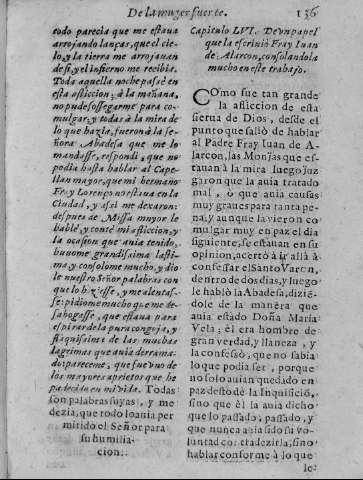 De la muger fuerte. 136
todo parecia que me estaua
arrojando lanças, que el cie-
lo, y la tierra me arrojauan
de si, y el infierno me recibia.
Toda aquella noche passè en
esta afliccion; à la mañana,
no pude sossegarme para co-
mulgar; y todas à la mira de
lo que hazia, fueron à la se-
ñora Abadesa que me lo
mandasse, respondi, que no
podia hasta hablar al Cape-
llan mayor, que mi hermano
Fr. Lorenço no estaua en la
Ciudad, y assi me dexaron:
despues de Missa mayor le
hablè, y contè mi afliccion, y
la ocasion que auia tenido,
huuome grandissima lasti-
ma, y consolome mucho, y dio
le nuestro Señor palabras con
que lo hiziesse, y me alentas-
se: pidiome mucho que me de-
sahogasse, que estaua para
espirar de la pura congoja, y
flaquissima de las muchas
lagrimas que auia derrama-
do; pareceme, que fue vno de
los mayores aprietos que he
padecido en mi vida. Todas
son palabras suyas, y me
dezia, que todo lo auia per-
mitido el Señor para
su humilia-
cion.
Capitulo LVI. De vn papel
que la escriuiò Fray Iuan
de Alarcon, consolandola
mucho en este trabajo.
COmo fue tan grande
la afliccion de esta
sierua de Dios, desde el
punto que saliò de hablar
al Padre Fray Iuan de A-
larcon, las Monjas que es-
tauan à la mira luego juz
garon que la auia tratado
mal, ò que auia causas
muy graues para tanta pe-
na; y aunque la vieron co
mulgar muy en paz el dia
siguiente, se estauan en su
opinion, acertò à ir allà à
confessar el Santo Varon,
dentro de dos dias, y luego
le hablò la Abadesa, dizié-
dole de la manera que
auia estado Doña Maria
Vela; èl era hombre de
gran verdad, y llaneza, y
la confesò, que no sabia
lo que podia ser, porque
no solo auian quedado en
paz desto de la Inquisiciõ,
sino que èl la auia dicho
que lo passado, passado, y
que nunca auia sido su vo-
luntad contradezirla, sino
hablar conforme à lo que
le